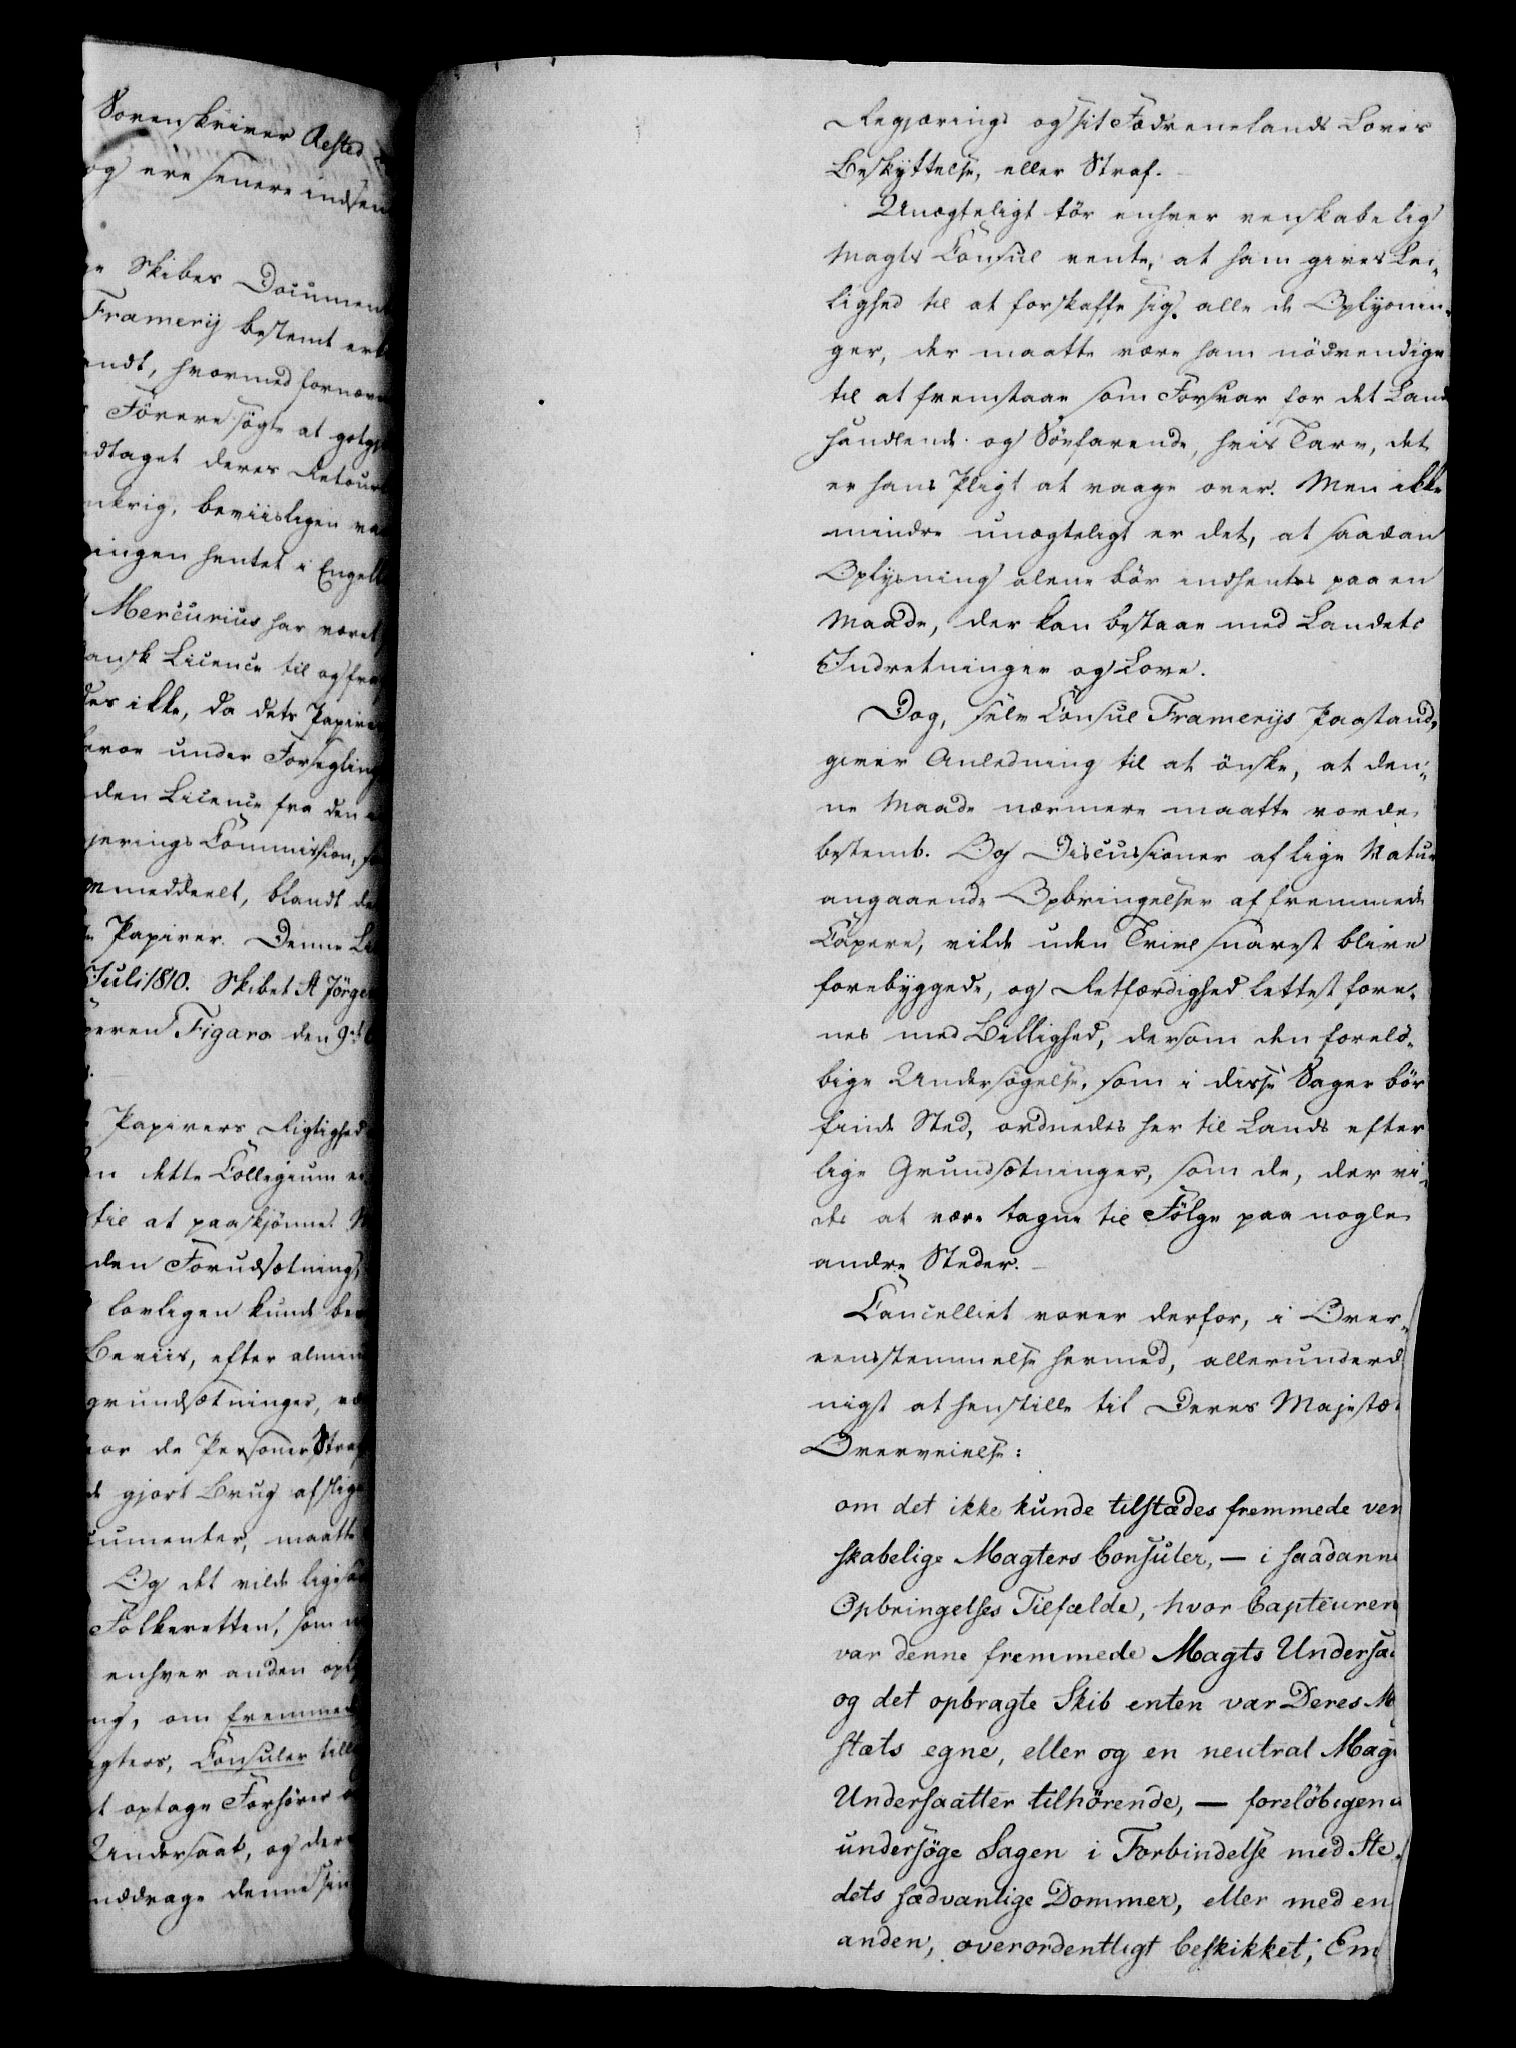 Sorenskriver Aested
og ere senere indsen
Skibes Documen
Framerij bestemt erk
endt, hvormed fornævn
Förere sögte at godtgj
dtaget deres Retour
nkrig, beviisligen va
ingen hentet i Engell
Mercurius har været
ansk Licence til og fra
des ikke, da dets Papire
under Forsegling
den Licence fra den
jerings Commission,
meddeelt, blandt de
Papirer. Denne Li
Juli 1810. Skibet St Jörgen
peren Figaro den 9de
Papirers Rigtighed
dette Collegium er
til at paaskjönne.
den Forudsætning,
lovligen kunde bev
Beviis, efter almin
grundsætninger, væ
for de Personer Straf
gjort Brug af slige
cumenter, maatte
Og det vilde ligesaa
Folkeretten, som
enhver anden opl
ng, om fremmed
gters, Consuler till
t optage Forhörer
Undersaat, og der
nddrage denne sin
Regjerings og sit Fædrenelands Loves
Beskyttelse, eller Straf.
Unægteligt tör enhver venskabelig
Magts Consul vente, at ham gives Lei-
lighed til at forskaffe sig alle de Oplysnin-
ger, der maatte være ham nödvendige
til at fremstaae som Forsvar for det Lands
handlende og Söefarende, hvis Tarv, det
er hans Pligt at vaage over. Men ikke
mindre unægteligt er det, at saadan
Oplysning alene bör indhentes paa en
Maade, der kan bestaae med Landets
Indretninger og Love.
Dog, selv Consul Framerijs Paastand,
giver Anledning til at önske, at den-
ne Maade nærmere maatte vorde
bestemt. Og Discussioner af lige Natur
angaaende Opbringelser af fremmede
Capere, vilde uden Tvivl snarest blive
forebyggede, og Retfærdighed lettest fore-
nes med Billighed, dersom den forelö-
bige Undersögelse, som i disse Sager bör
finde Sted, ordnedes her til Lands efter
lige Grundsætninger, som de, der vi-
des at være tagne til Fölge paa nogle
andre Steder.
Cancelliet vover derfor, i Over-
eensstemmelse hermed, allerunderd
nigst at henstille til Deres Majestæ
Overveielse:
om det ikke kunde tilstædes fremmede ven
skabelige Magters Consuler, — i saadanne
Opbringelses Tilfælde, hvor Capteuren
var denne fremmede Magts Undersa
og det opbragte Skib enten var Deres M
stæts egne, eller og en neutral Mag
Undersaatter tilhörende, — forelöbigen
undersöge Sagen i Forbindelse med Ste-
dets sædvanlige Dommer, eller med en
anden, overordentligt beskikket, Em